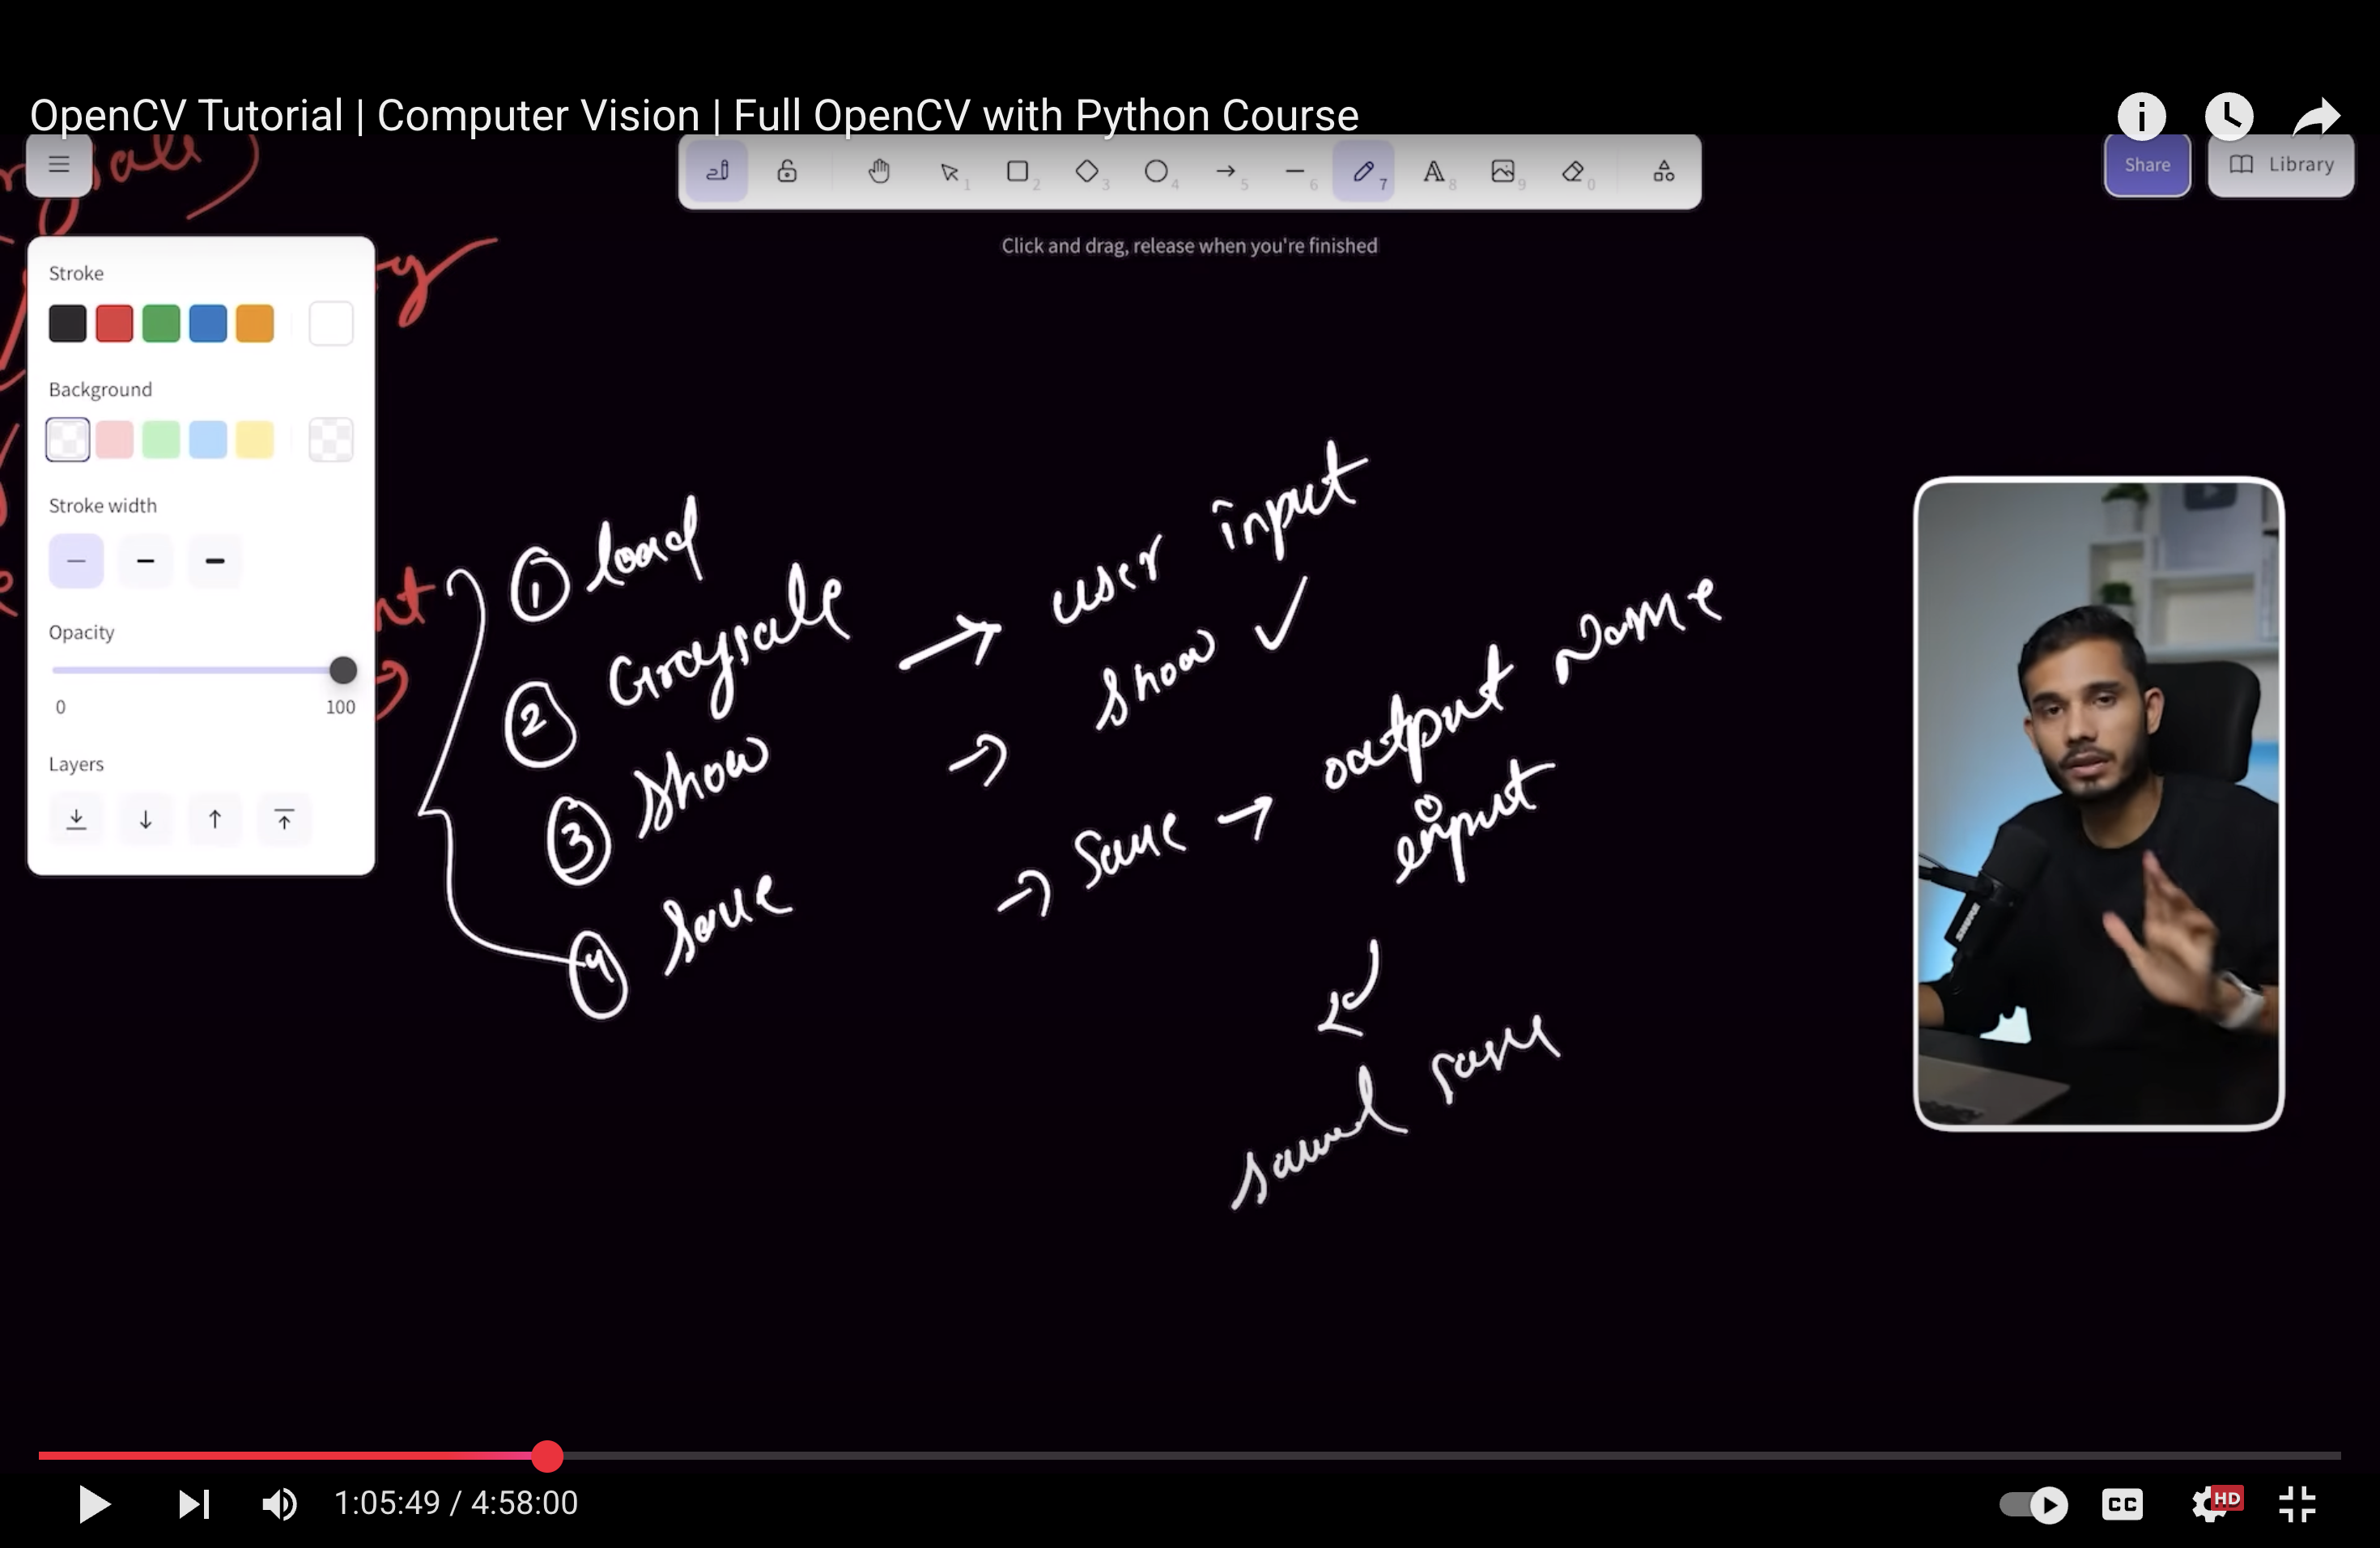 OpenCV Tutorial | Computer Vision | Full OpenCV with Python Course
1 2 3 4 5 6 7 8 9 0
Share
Library
Click and drag, release when you're finished
Stroke
Background
Stroke width
Opacity
0 100
Layers
nt
① load
② Graysale
③ Show
④ Save
→ user input
→ Show ✓
→ Save → output Name
input
SHURE
1:05:49 / 4:58:00
CC
HD